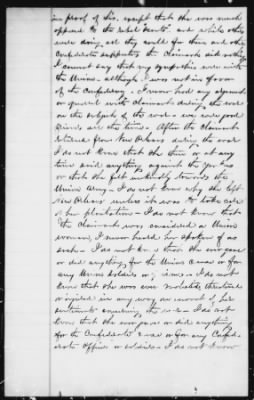 in proof of this, except that she was much
opposed to the Rebel and while others
were doing all they could for them and other
Confederate supporters the Claimant did nothing
I cannot say that my sympathies were with
the Union - although I was not in favor
of the Confederacy - I never had any argument
or quarrel with Claimant during the war
on the subject of the war - we were good
friends all the time - After the Claimant
returned from New Orleans during the war
I do not know that she then or at any
time said anything against the
or that she felt unkindly towards the
Union Army - I do not know why she left
New Orleans unless it was to take care
of her plantation - I do not know that
the Claimant was considered a Union
woman, I never heard her spoken of as
such - I do not know that she ever gave
or did anything for the Union cause or for
any Union soldiers or - I do not
know that she was ever molested threatened
or injured in any way on account of her
sentiments - I do not
know that she ever gave or did anything
for the Confederate cause or for any Confed-
erate officer or soldiers - I do not know